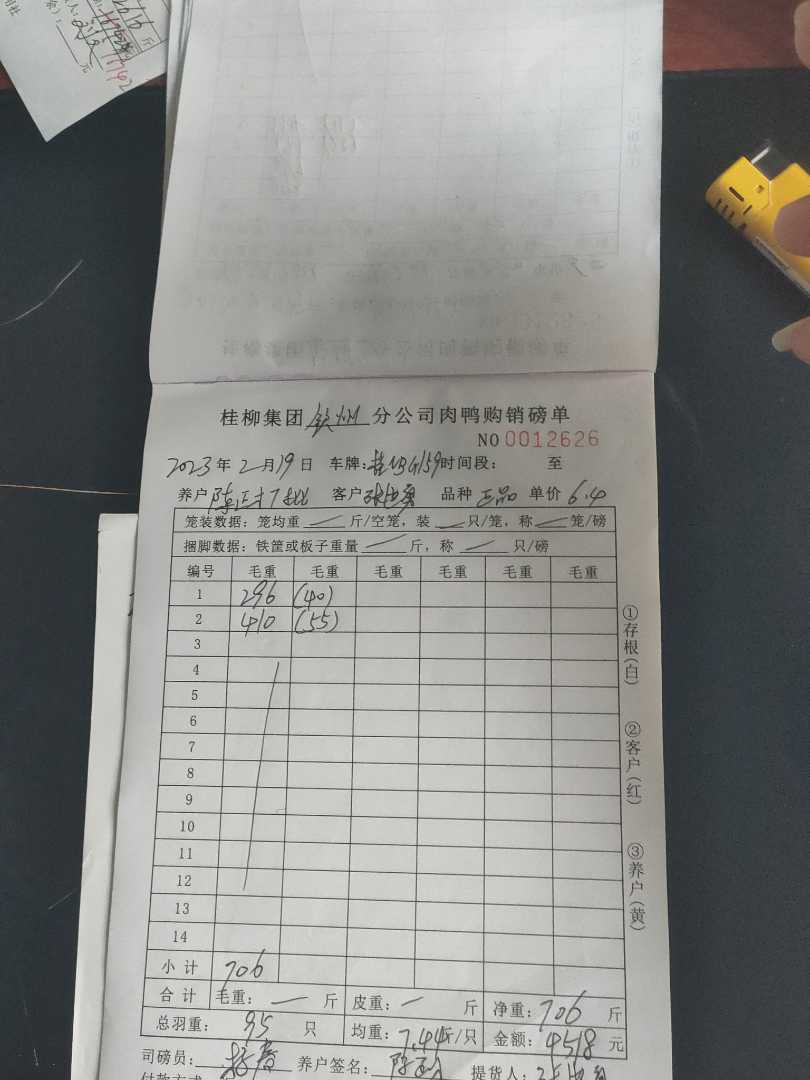 斤
元
桂柳集团 钦州 分公司肉鸭购销磅单
NO 0012626
2023 年 2 月 19 日 车牌: 时间段: 至
养户 陈正才 客户 品种 正品 单价 6.4
笼装数据: 笼均重 斤/空笼, 装 只/笼, 称 笼/磅
捆脚数据: 铁筐或板子重量 斤, 称 只/磅
编号 毛重 毛重 毛重 毛重 毛重 毛重
1 296 (40)
2 410 (55)
3
4
5
6
7
8
9
10
11
12
13
14
小计 706
合计 毛重: — 斤 皮重: — 斤 净重: 706 斤
总羽重: 95 只 均重: 7.44 斤/只 金额: 4518 元
司磅员: 养户签名: 提货人:
付款方式
①存根(白)
②客户(红)
③养户(黄)